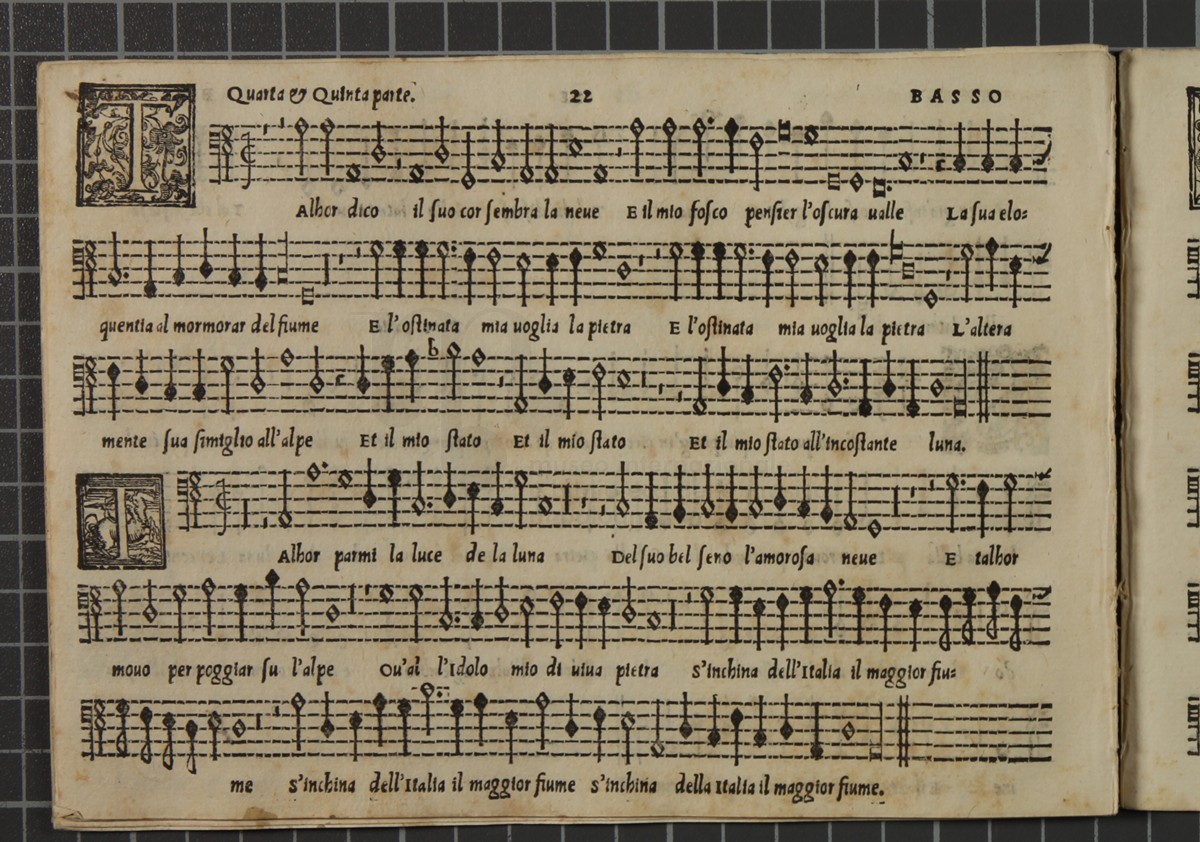 Quarta & Quinta parte. 22 BASSO
TAlhor dico il ſuo cor ſembra la neue E il mio foſco penſier l'oſcura ualle La ſua elo=
quentia al mormorar del fiume E l'oſtinata mia uoglia la pietra E l'oſtinata mia uoglia la pietra L'altera
mente ſua ſimiglio all'alpe Et il mio ſtato Et il mio ſtato Et il mio ſtato all'incoſtante luna.
TAlhor parmi la luce de la luna Del ſuo bel ſeno l'amoroſa neue E talhor
mouo per poggiar ſu l'alpe Ou'al l'Idolo mio di uiua pietra S'inchina dell'Italia il maggior fiu=
me S'inchina dell'Italia il maggior fiume S'inchina della Italia il maggior fiume.